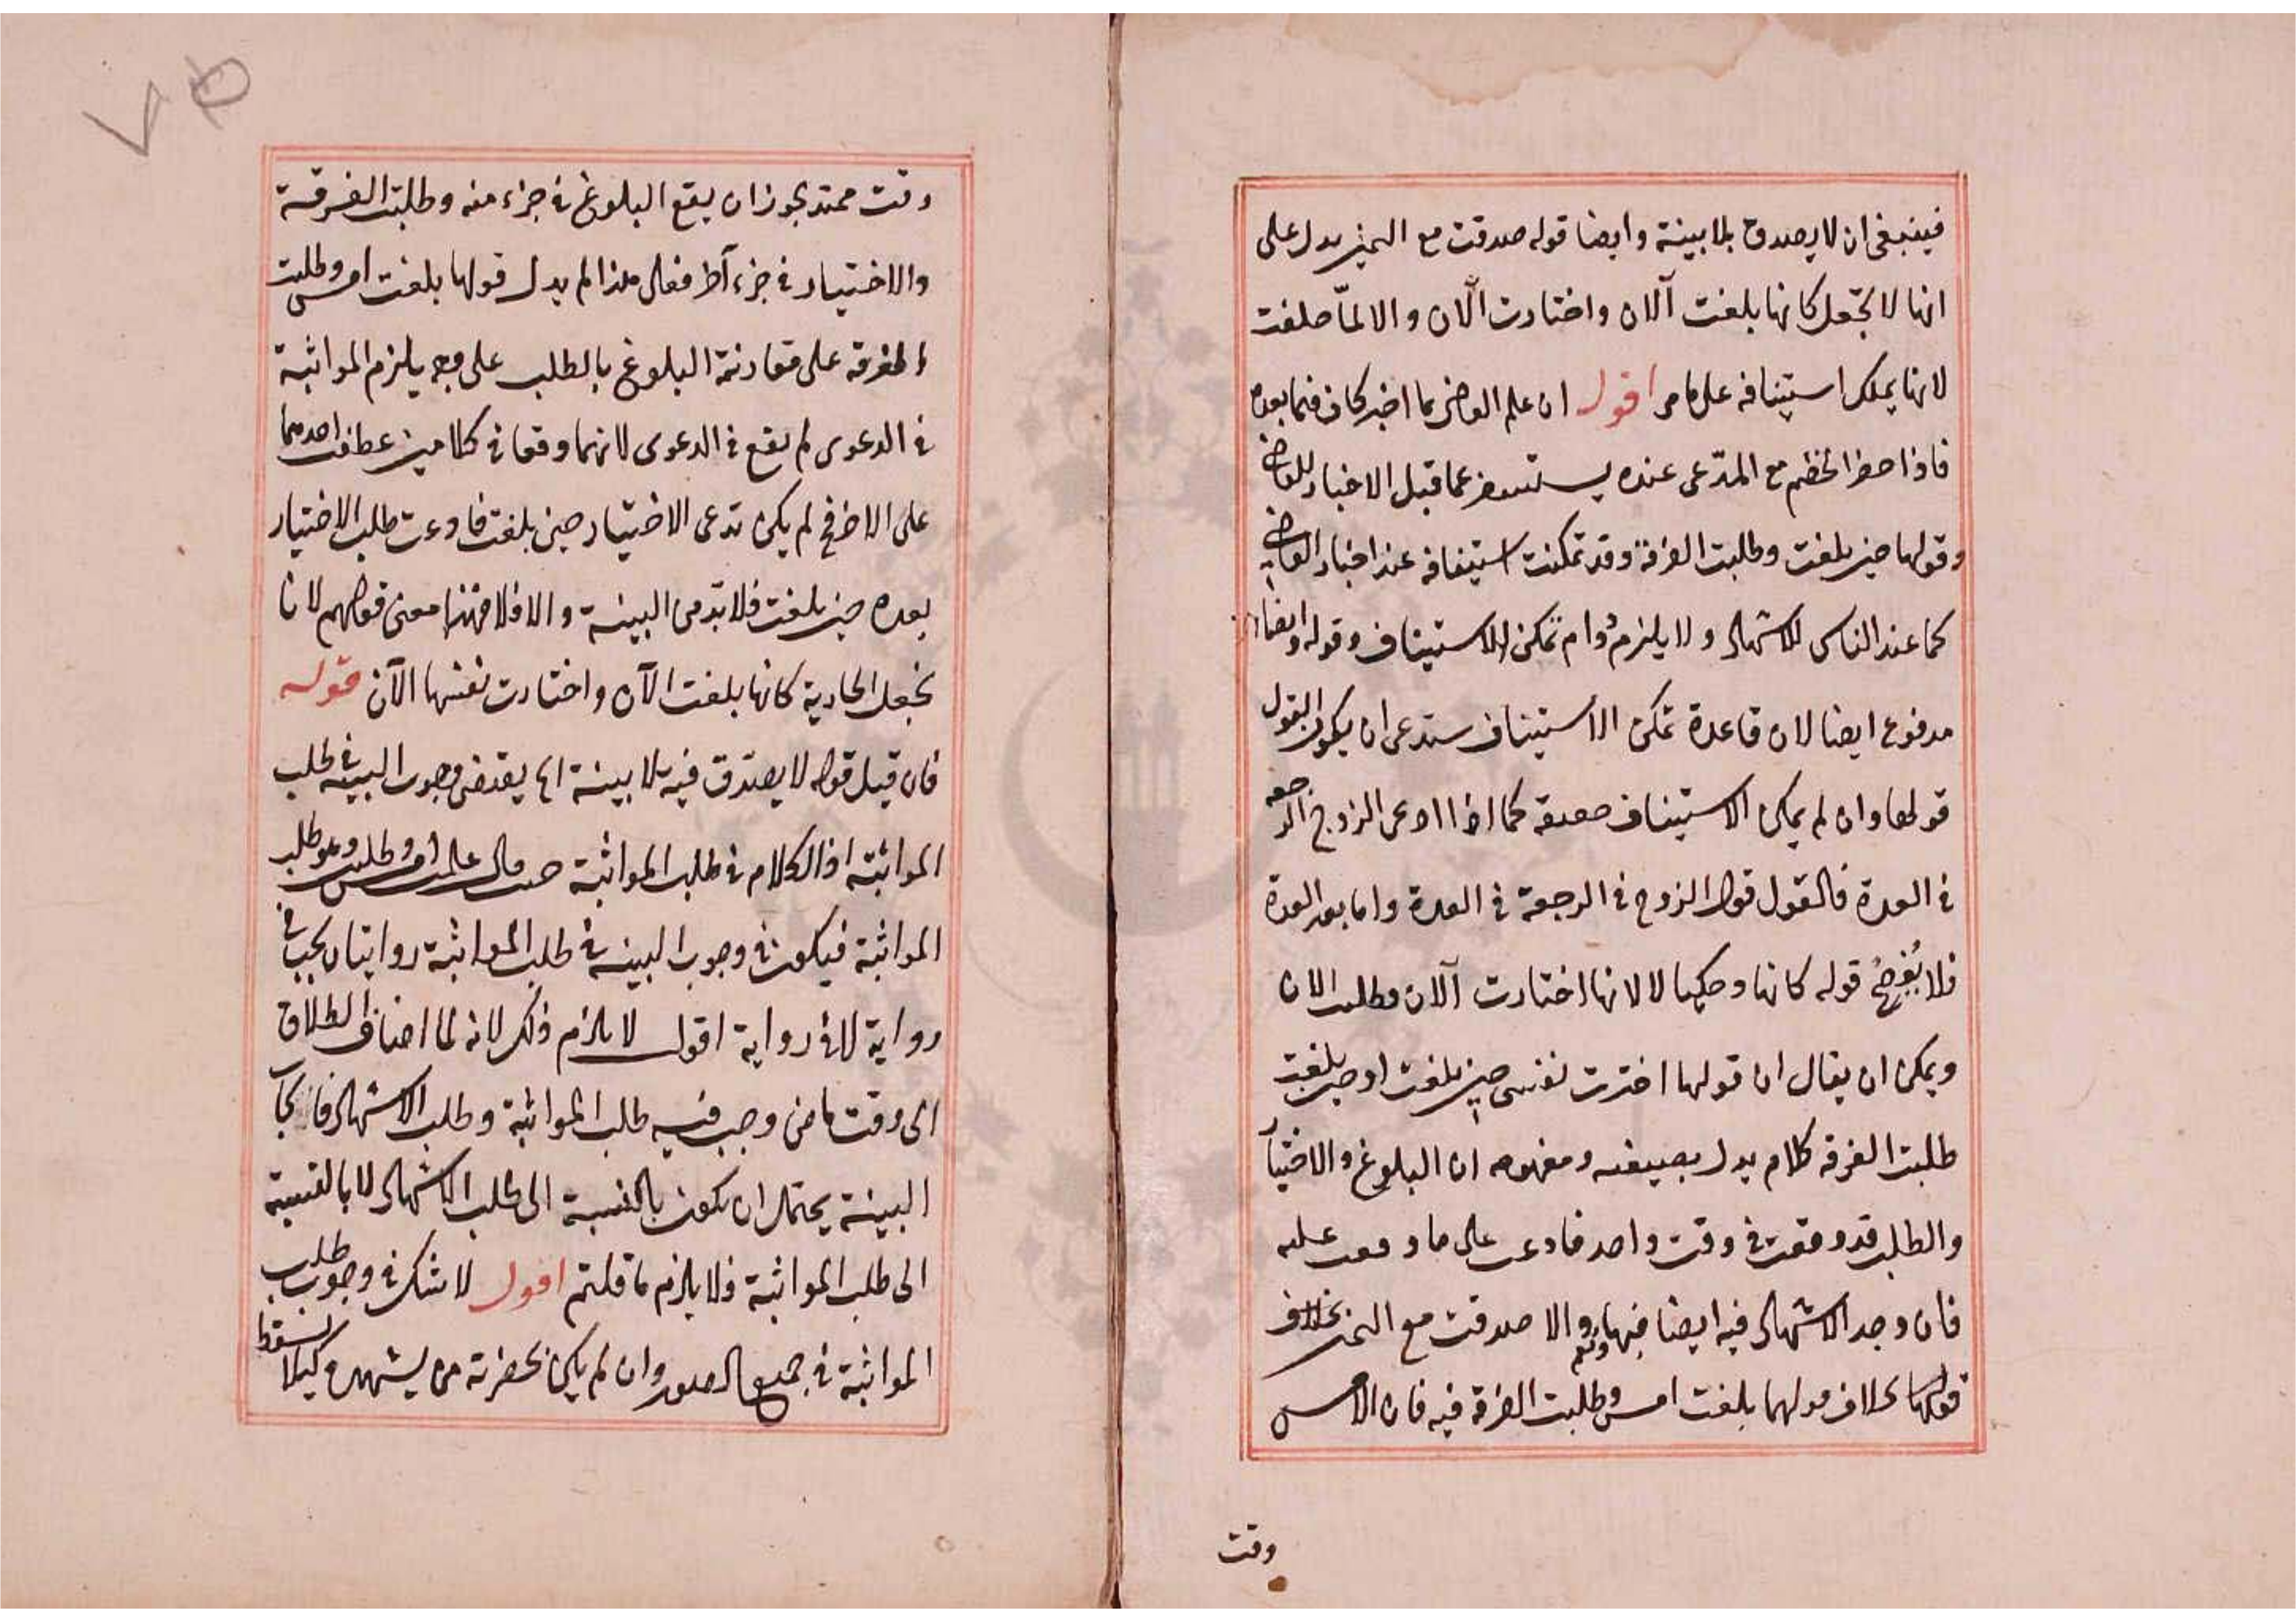 فينبغى ان لا يصدق بلا بينة وايضا قوله صدقت مع اليمين يدل على
انها لا تجعل كانها بلغت آلان واختارت الآن والا لما حلفت
لانها يملك استينافه على ما مر اقول ان علم القاضى بما اخبر كاف فيما بعده
فاذا حضر الخصم مع المدّعى عنده يستفسر عما قبل الاخبار للقاضى
وقولها حين بلغت وطلبت الفرقة وقد تمكنت استينافه عند اخبار القاضى
كما عند الناس للاشهاد ولا يلزم دوام تمكن الاستيناف وقوله وايضا
مدفوع ايضا لان قاعدة تمكن الاستيناف ستدعى ان يكون القول
قولها وان لم يمكن الاستيناف حقيقة كما اذا ادعى الزوج الرجعة
فى العدة فالقول قول الزوج فى الرجعة فى العدة واما بعد العدة
فلا قوله كانها وحكيها لا لانها اختارت آلان وطلبت الان
ويمكن ان يقال ان قولها اخترت نفسى حين بلغت او حين بلغت
طلبت الفرقة كلام يدل بصيغته ومفهومه ان البلوغ والاختيا
والطلب قد وقعت فى وقت واحد فادعت على ما وقعت عليه
فان وجد الاشهاد فيه ايضا فبها ونعم والا صدقت مع اليمين بخلاف
قولها بخلاف قولها بلغت امس وطلبت الفرقة فيه فان الامس
وقت
وقت ممتد يجوز ان يقع البلوغ فى جزء منه وطلبت الفرقة
والاختيار فى جزء آخر فعلى هذا لم يدل قولها بلغت امس وطلبت
الفرقة على مقارنة البلوغ بالطلب على وجه يلزم المواثبة
فى الدعوى لم يقع فى الدعوى لانهما وقعا فى كلامين عطف احدهما
على الاخر فح لم يكن تدعى الاختيار حين بلغت فادعت طلب الاختيار
بعده حين بلغت فلا بد من البينة والا فلا فهذا معنى قولهم لانا
نجعل الجارية كانها بلغت الآن واختارت نفسها الآن قوله
فان قيل قوله لا يصدق فيه بلا بينة اه يقتضى وجوب البينة فى طلب
المواثبة اذ الكلام فى طلب المواثبة حيث قال علمت امس وطلبت وهو طلب
المواثبة فيكون فى وجوب البينة فى طلب المواثبة روايتان يجب فى
رواية لا فى رواية اقول لا يلزم ذلك لانه لما اضاف الطلاق
الى وقت ماض وجب فيه طلب المواثبة وطلب الاشهاد فايجا
البينة يحتمل ان يكون بالنسبة الى طلب الاشهاد لا بالنسبة
الى طلب المواثبة فلا يلزم ما قلتم اقول لا شك فى وجوب طلب
المواثبة فى جميع الصور وان لم يكن بحضرته من يشهده كيلا يسقط